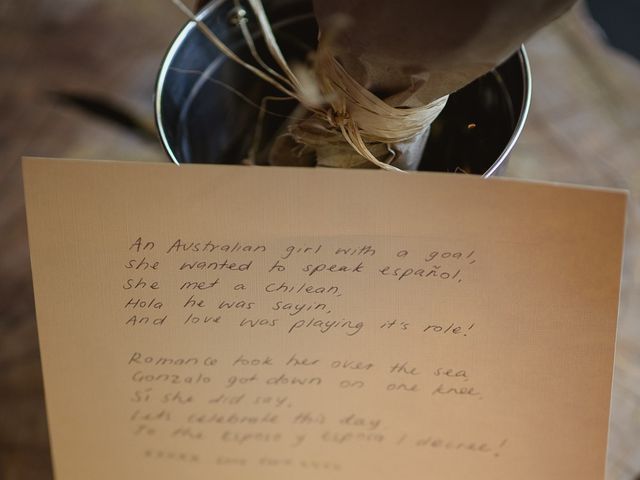 An Australian girl with a goal,
she wanted to speak español.
She met a Chilean,
Hola he was sayin,
And love was playing it's role!
Romance took her over the sea,
Gonzalo got down on one knee.
Sí she did say.
Lets celebrate this day
To the Esposo y Esposa I decree!